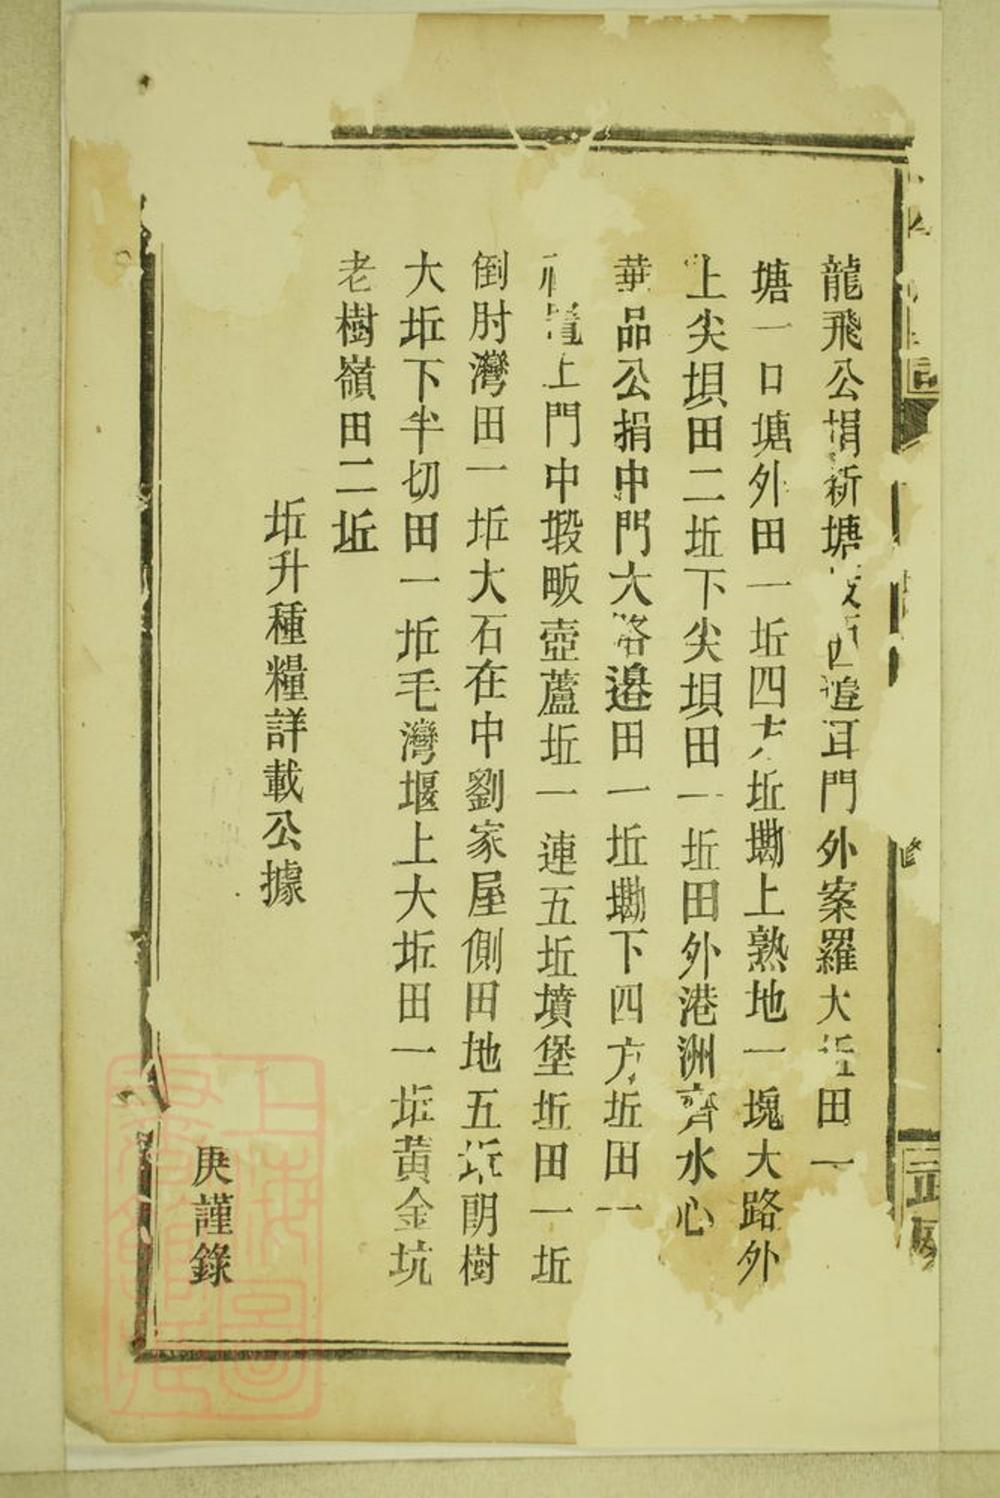 龍飛公捐新塘西邉耳門外案羅大坵田一
塘一口塘外田一坵四方坵墈上熟地一塊大路外
上尖垻田二坵下尖垻田一坵田外港洲齊水心
華品公捐中門大路邉田一坵墈下四方坵田一
上門中塅畈壺蘆坵一連五坵墳堡坵田一坵
倒肘灣田一坵大石在中劉家屋側田地五坵朗樹
大坵下半切田一坵毛灣堰上大坵田一坵黃金坑
老樹嶺田二坵
坵升種糧詳載公據
庚謹錄